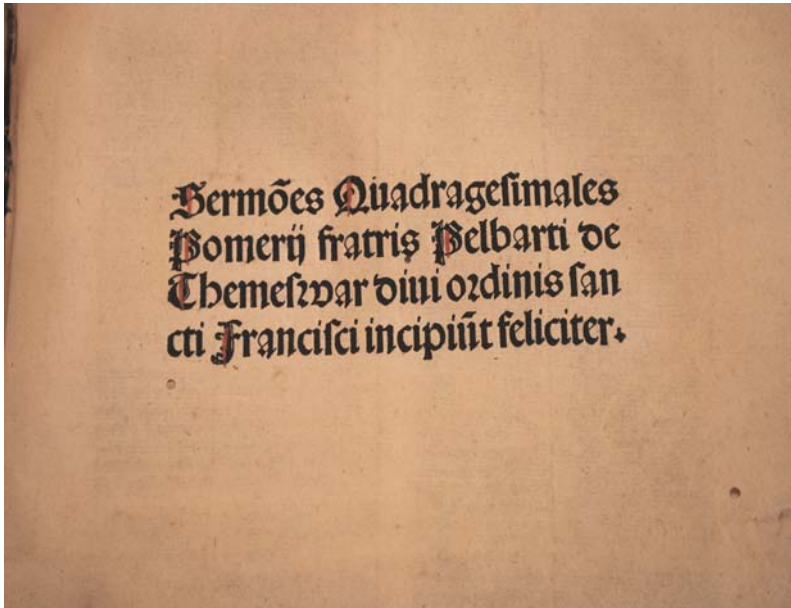 Sermões Quadrageſimales
Pomerij fratris Pelbarti de
Themeſꝛvar diui oꝛdinis ſan
cti Franciſci incipiūt feliciter.